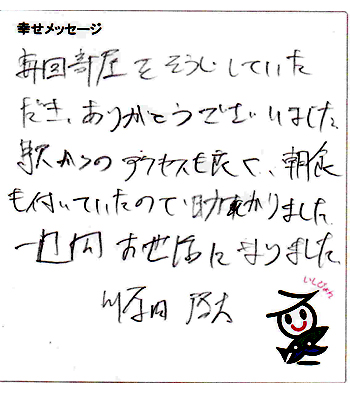 幸せメッセージ
毎回部屋をそうじしていた
だき、ありがとうございました。
駅からのアクセスも良く、朝食
も付いていたので助かりました。
一週間お世話になりました。